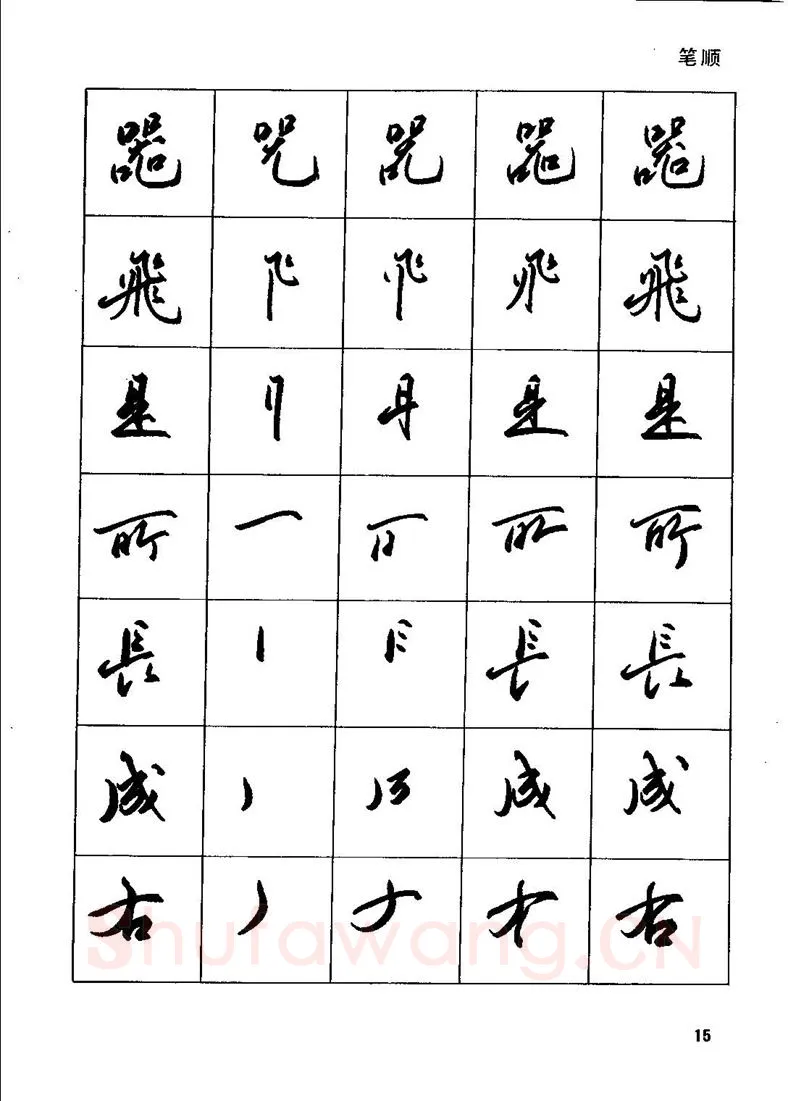 笔顺
器 器
飛 飛
是 是 是
所 所
長 長
成 成 成
右 右
Shufawang.CN
15